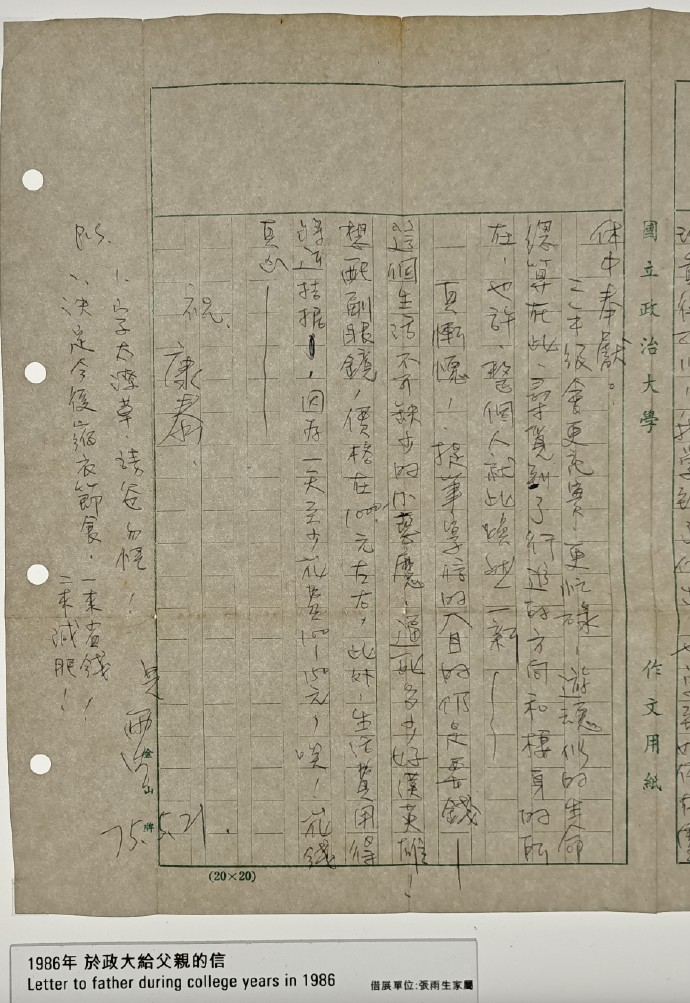 國立政治大學 作文用紙
休中奉獻。
三年級會更充實、更忙碌，游魂似的生命
總算在此、尋覓到了行進的方向和棲身的所
在，也許，整個人就此煥然一新———
真慚愧！提筆寫信的入目的仍是要錢—
這個生活不可缺少的小惡魔！逼死多少好漢英雄！
想配副眼鏡，價格在1000元左右，此外，生活費用得
拮据，因為一天至少花費100~150元，唉！花錢
真凶——
祝
康泰
兒 雨生
75.5.21.
P.S.
1、字太潦草，請爸勿怪！
2、決定今後縮衣節食，一來省錢！
二來減肥！
(20×20)
金山牌
1986年 於政大給父親的信
Letter to father during college years in 1986
借展單位:張雨生家屬